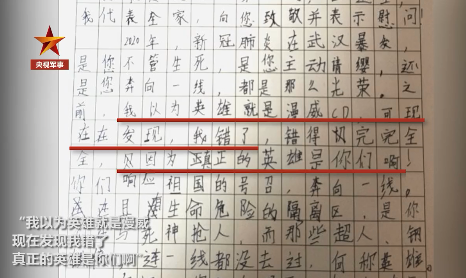 央视军事
我代表全家，向您致敬并表示慰问！
2020年，新冠肺炎在武汉暴发，
是您不管生死，是您主动请缨，还
是您奔向一线，都是那么光荣。之
前，我以为英雄就是漫威CD，可现
在在发现，我错了，错得机完完全
全，只因为真正的英雄是你们啊！
你们响应祖国的号召，奔向一线。
生命危险的隔离区，是你
死神抢人 而那些超人、钢
一线都没去过，何称英雄
“我以为英雄就是漫威
现在发现我错了
真正的英雄是你们啊”